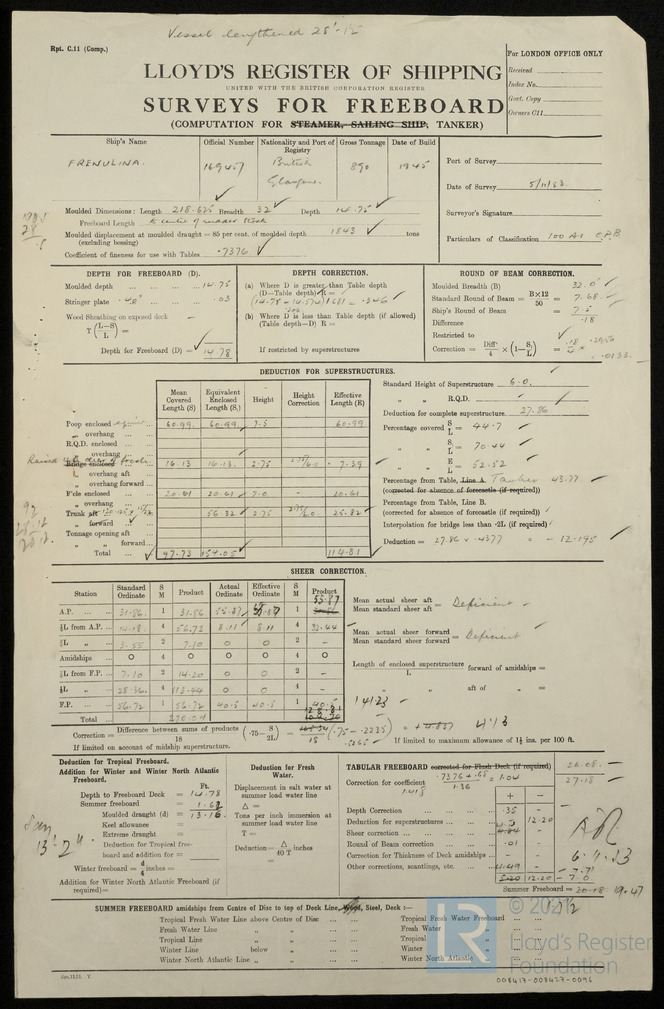 Vessel lengthened 28'-1½"
Rpt. C.11 (Comp.)
For LONDON OFFICE ONLY
Received
Index No.
Govt. Copy
Owners C11
LLOYD'S REGISTER OF SHIPPING
UNITED WITH THE BRITISH CORPORATION REGISTER
SURVEYS FOR FREEBOARD
(COMPUTATION FOR STEAMER, SAILING SHIP, TANKER)
Ship's Name Official Number Nationality and Port of Registry Gross Tonnage Date of Build
FRENULINA. 169457 British Glasgow 890 1945
Port of Survey
Date of Survey 5/11/53
Surveyor's Signature
Particulars of Classification 100 A1
Moulded Dimensions: Length 218.625 Breadth 32 Depth 14.75
Freeboard Length
Moulded displacement at moulded draught = 85 per cent. of moulded depth 1843 tons
(excluding bossing)
Coefficient of fineness for use with Tables .7376
DEPTH FOR FREEBOARD (D).
Moulded depth 14.75
Stringer plate .03
Wood Sheathing on exposed deck
T (L-S/L) =
Depth for Freeboard (D) = 14.78
DEPTH CORRECTION.
(a) Where D is greater than Table depth
(D-Table depth) R =
(14.78 - 14.574) 1.681 = .346
(b) Where D is less than Table depth (if allowed)
(Table depth-D) R =
If restricted by superstructures
ROUND OF BEAM CORRECTION.
Moulded Breadth (B) 32.0
Standard Round of Beam = B×12/50 = 7.68
Ship's Round of Beam = 7.5
Difference .18
Restricted to
Correction = Diff/4 × (1-S/L) =
DEDUCTION FOR SUPERSTRUCTURES.
Mean Covered Length (S) Equivalent Enclosed Length (S₁) Height Height Correction Effective Length (E)
Poop enclosed 60.99 60.99 7.5 60.99
„ overhang
R.Q.D. enclosed
„ overhang
Bridge enclosed 16.13 16.13 2.75 2.75/6.0 7.39
„ overhang aft
„ overhang forward
F'cle enclosed 20.61 20.61 7.0 20.61
„ overhang
Trunk aft 56.32 2.75 2.75/6.0 25.82
„ forward
Tonnage opening aft
„ „ forward
Total 97.73 154.05 114.81
Standard Height of Superstructure 6.0
„ „ R.Q.D.
Deduction for complete superstructure 27.86
Percentage covered S/L = 44.7
„ „ S₁/L = 70.44
„ „ E/L = 52.52
Percentage from Table, Line A. Tanker 43.77
(corrected for absence of forecastle (if required))
Percentage from Table, Line B.
(corrected for absence of forecastle (if required))
Interpolation for bridge less than ·2L (if required)
Deduction = 27.86 × .4377 = - 12.195
SHEER CORRECTION.
Station Standard Ordinate S M Product Actual Ordinate Effective Ordinate S M Product
A.P. 31.86 1 31.86 55.87 55.87 1 55.87
⅙L from A.P. 14.18 4 56.72 8.11 8.11 4 32.44
⅓L „ 3.55 2 7.10 0 0 2 -
Amidships 0 4 0 0 0 4 0
⅓L from F.P. 7.10 2 14.20 0 0 2 -
⅙L „ 28.36 4 113.44 0 0 4 -
F.P. 56.72 1 56.72 40.5 40.5 1 40.5
Total
Mean actual sheer aft / Mean standard sheer aft = Deficient
Mean actual sheer forward / Mean standard sheer forward = Deficient
Length of enclosed superstructure / L forward of amidships =
„ „ aft of „ =
Correction = Difference between sums of products / 18 (·75-S/2L) =
If limited on account of midship superstructure.
If limited to maximum allowance of 1½ ins. per 100 ft.
Deduction for Tropical Freeboard.
Addition for Winter and Winter North Atlantic Freeboard.
Ft.
Depth to Freeboard Deck = 14.78
Summer freeboard = 1.62
Moulded draught (d) = 13.16
Keel allowance =
Extreme draught =
Deduction for Tropical freeboard and addition for =
Winter freeboard = d/4 inches =
Addition for Winter North Atlantic Freeboard (if required)=
Deduction for Fresh Water.
Displacement in salt water at summer load water line
Δ =
Tons per inch immersion at summer load water line
T =
Deduction= Δ/40 T inches
=
TABULAR FREEBOARD corrected for Flush Deck (if required) 26.08
Correction for coefficient .7376 + .68 / 1.36 = 1.04 27.18
+ -
Depth Correction .35 -
Deduction for superstructures - 12.20
Sheer correction
Round of Beam correction .01 -
Correction for Thickness of Deck amidships - -
Other corrections, scantlings, etc.
Summer Freeboard =
SUMMER FREEBOARD amidships from Centre of Disc to top of Deck Line, Wood, Steel, Deck :—
Tropical Fresh Water Line above Centre of Disc
Fresh Water Line „ „
Tropical Line „ „
Winter Line below „
Winter North Atlantic Line „ „
Tropical Fresh Water Freeboard
Fresh Water „
Tropical „
Winter „
Winter North Atlantic „
LR
© 2021
Lloyd's Register
Foundation
008417-008427-0096